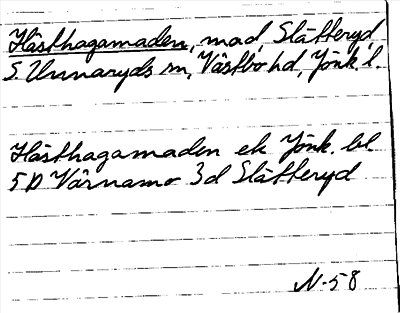 Hästhagamaden, mad, Slätteryd,
S. Unnaryds sn, Västbo hd, Jönk. l.
Hästhagamaden ek Jönk. bl.
5 D Värnamo 3d Slätteryd
N-58